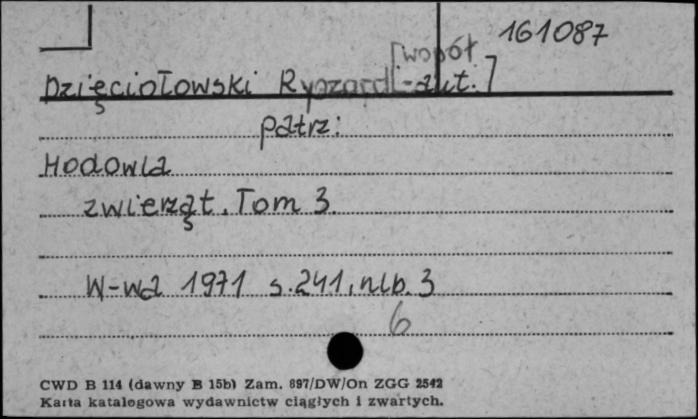 161087
Dzięciołowski Ryszard [współ
-aut.]
patrz:
Hodowla
zwierząt. Tom 3.
W-wa 1971 s. 241, nlb. 3
6
CWD B 114 (dawny B 15b) Zam. 897/DW/On ZGG 2542
Karta katalogowa wydawnictw ciągłych i zwartych.